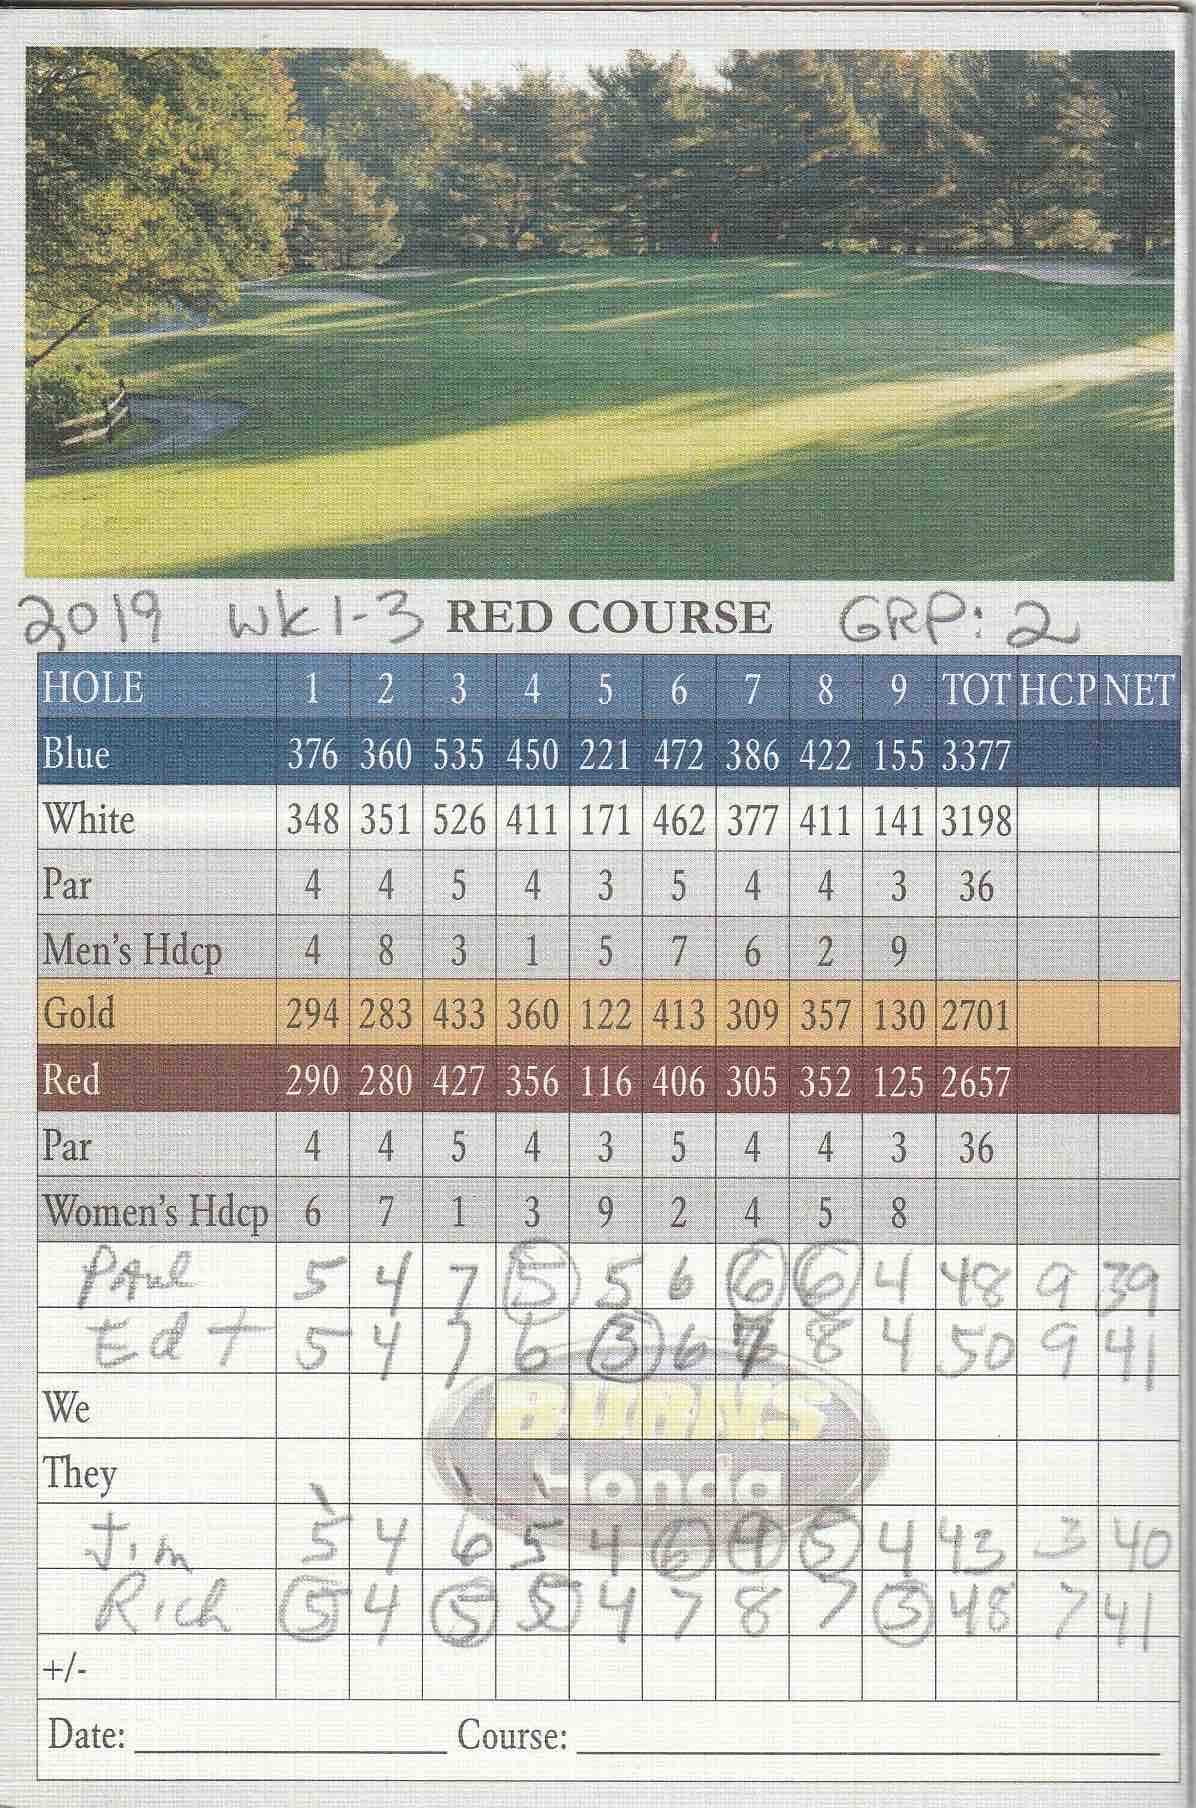 2019 WK1-3 RED COURSE GRP: 2
HOLE 1 2 3 4 5 6 7 8 9 TOT HCP NET
Blue 376 360 535 450 221 472 386 422 155 3377
White 348 351 526 411 171 462 377 411 141 3198
Par 4 4 5 4 3 5 4 4 3 36
Men's Hdcp 4 8 3 1 5 7 6 2 9
Gold 294 283 433 360 122 413 309 357 130 2701
Red 290 280 427 356 116 406 305 352 125 2657
Par 4 4 5 4 3 5 4 4 3 36
Women's Hdcp 6 7 1 3 9 2 4 5 8
PAul 5 4 7 5 5 6 6 6 4 48 9 39
Ed t 5 4 7 6 3 6 7 8 4 50 9 41
We
BURNS
They
Honda
Jim 5 4 6 5 4 6 4 5 4 43 3 40
Rich 5 4 5 5 4 7 8 7 3 48 7 41
+/-
Date: Course: